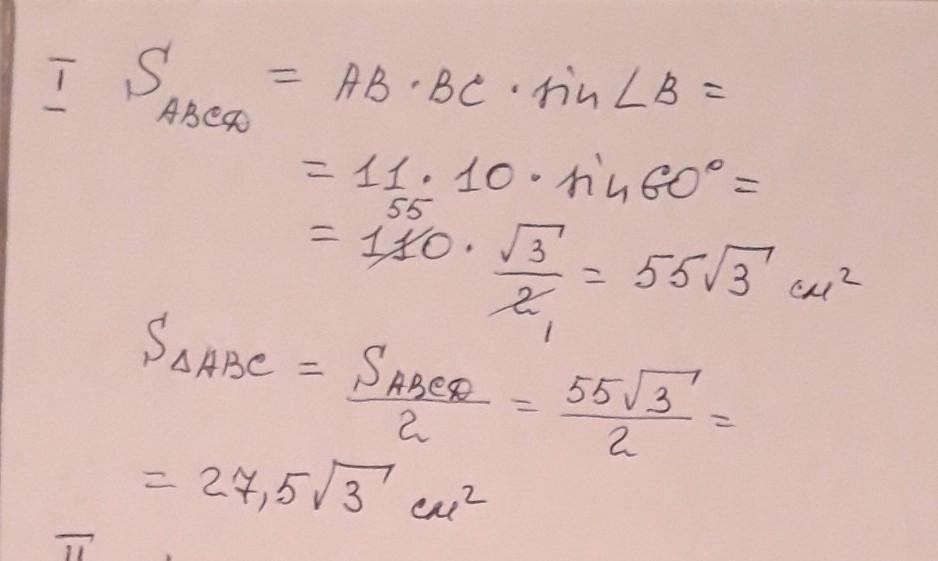 I S_ABCD = AB · BC · sin∠B =
= 11 · 10 · sin60° =
55
= 110 · √3/2 = 55√3 см²
1
S△ABC = S_ABCD/2 = 55√3/2 =
= 27,5√3 см²
II